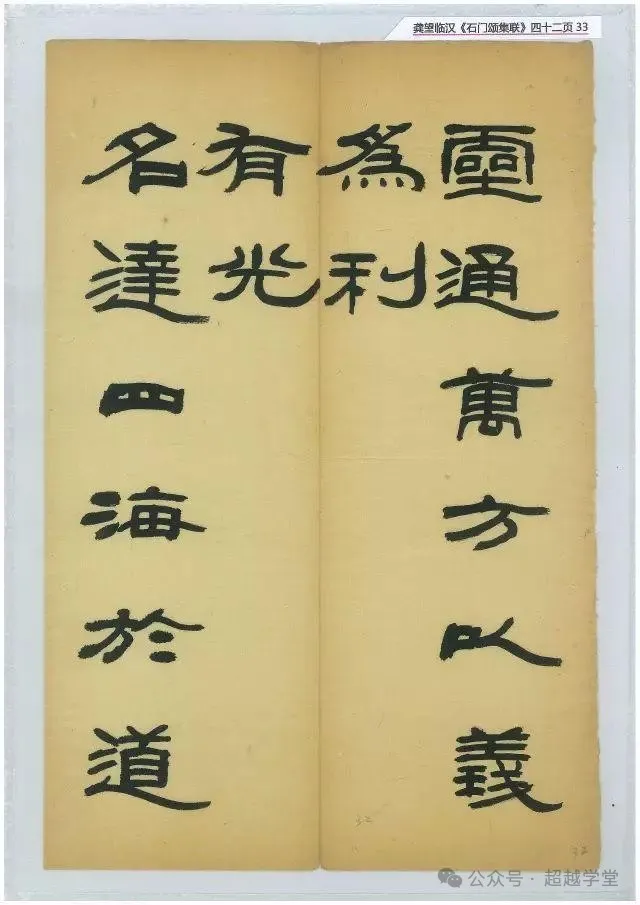 龚望临汉《石门颂集联》四十二页 33
靈通萬方以義
為利
名達四海於道
有光
32
32
公众号·超越学堂